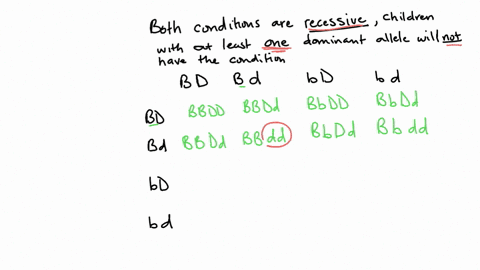 Both conditions are recessive, children
with at least one dominant allele will not
have the condition
BD Bd bD bd
BD BBDD BBDd BbDD BbDd
Bd BBDd BBdd BbDd Bbdd
bD
bd